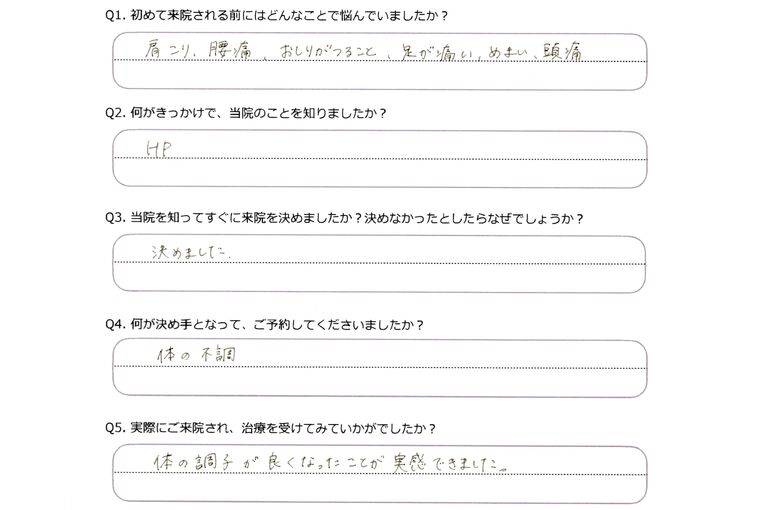 Q1. 初めて来院される前にはどんなことで悩んでいましたか？
肩こり、腰痛、おしりがつること、足が痛い、めまい、頭痛
Q2. 何がきっかけで、当院のことを知りましたか？
HP
Q3. 当院を知ってすぐに来院を決めましたか？決めなかったとしたらなぜでしょうか？
決めました.
Q4. 何が決め手となって、ご予約してくださいましたか？
体の不調
Q5. 実際にご来院され、治療を受けてみていかがでしたか？
体の調子が良くなったことが実感できました。